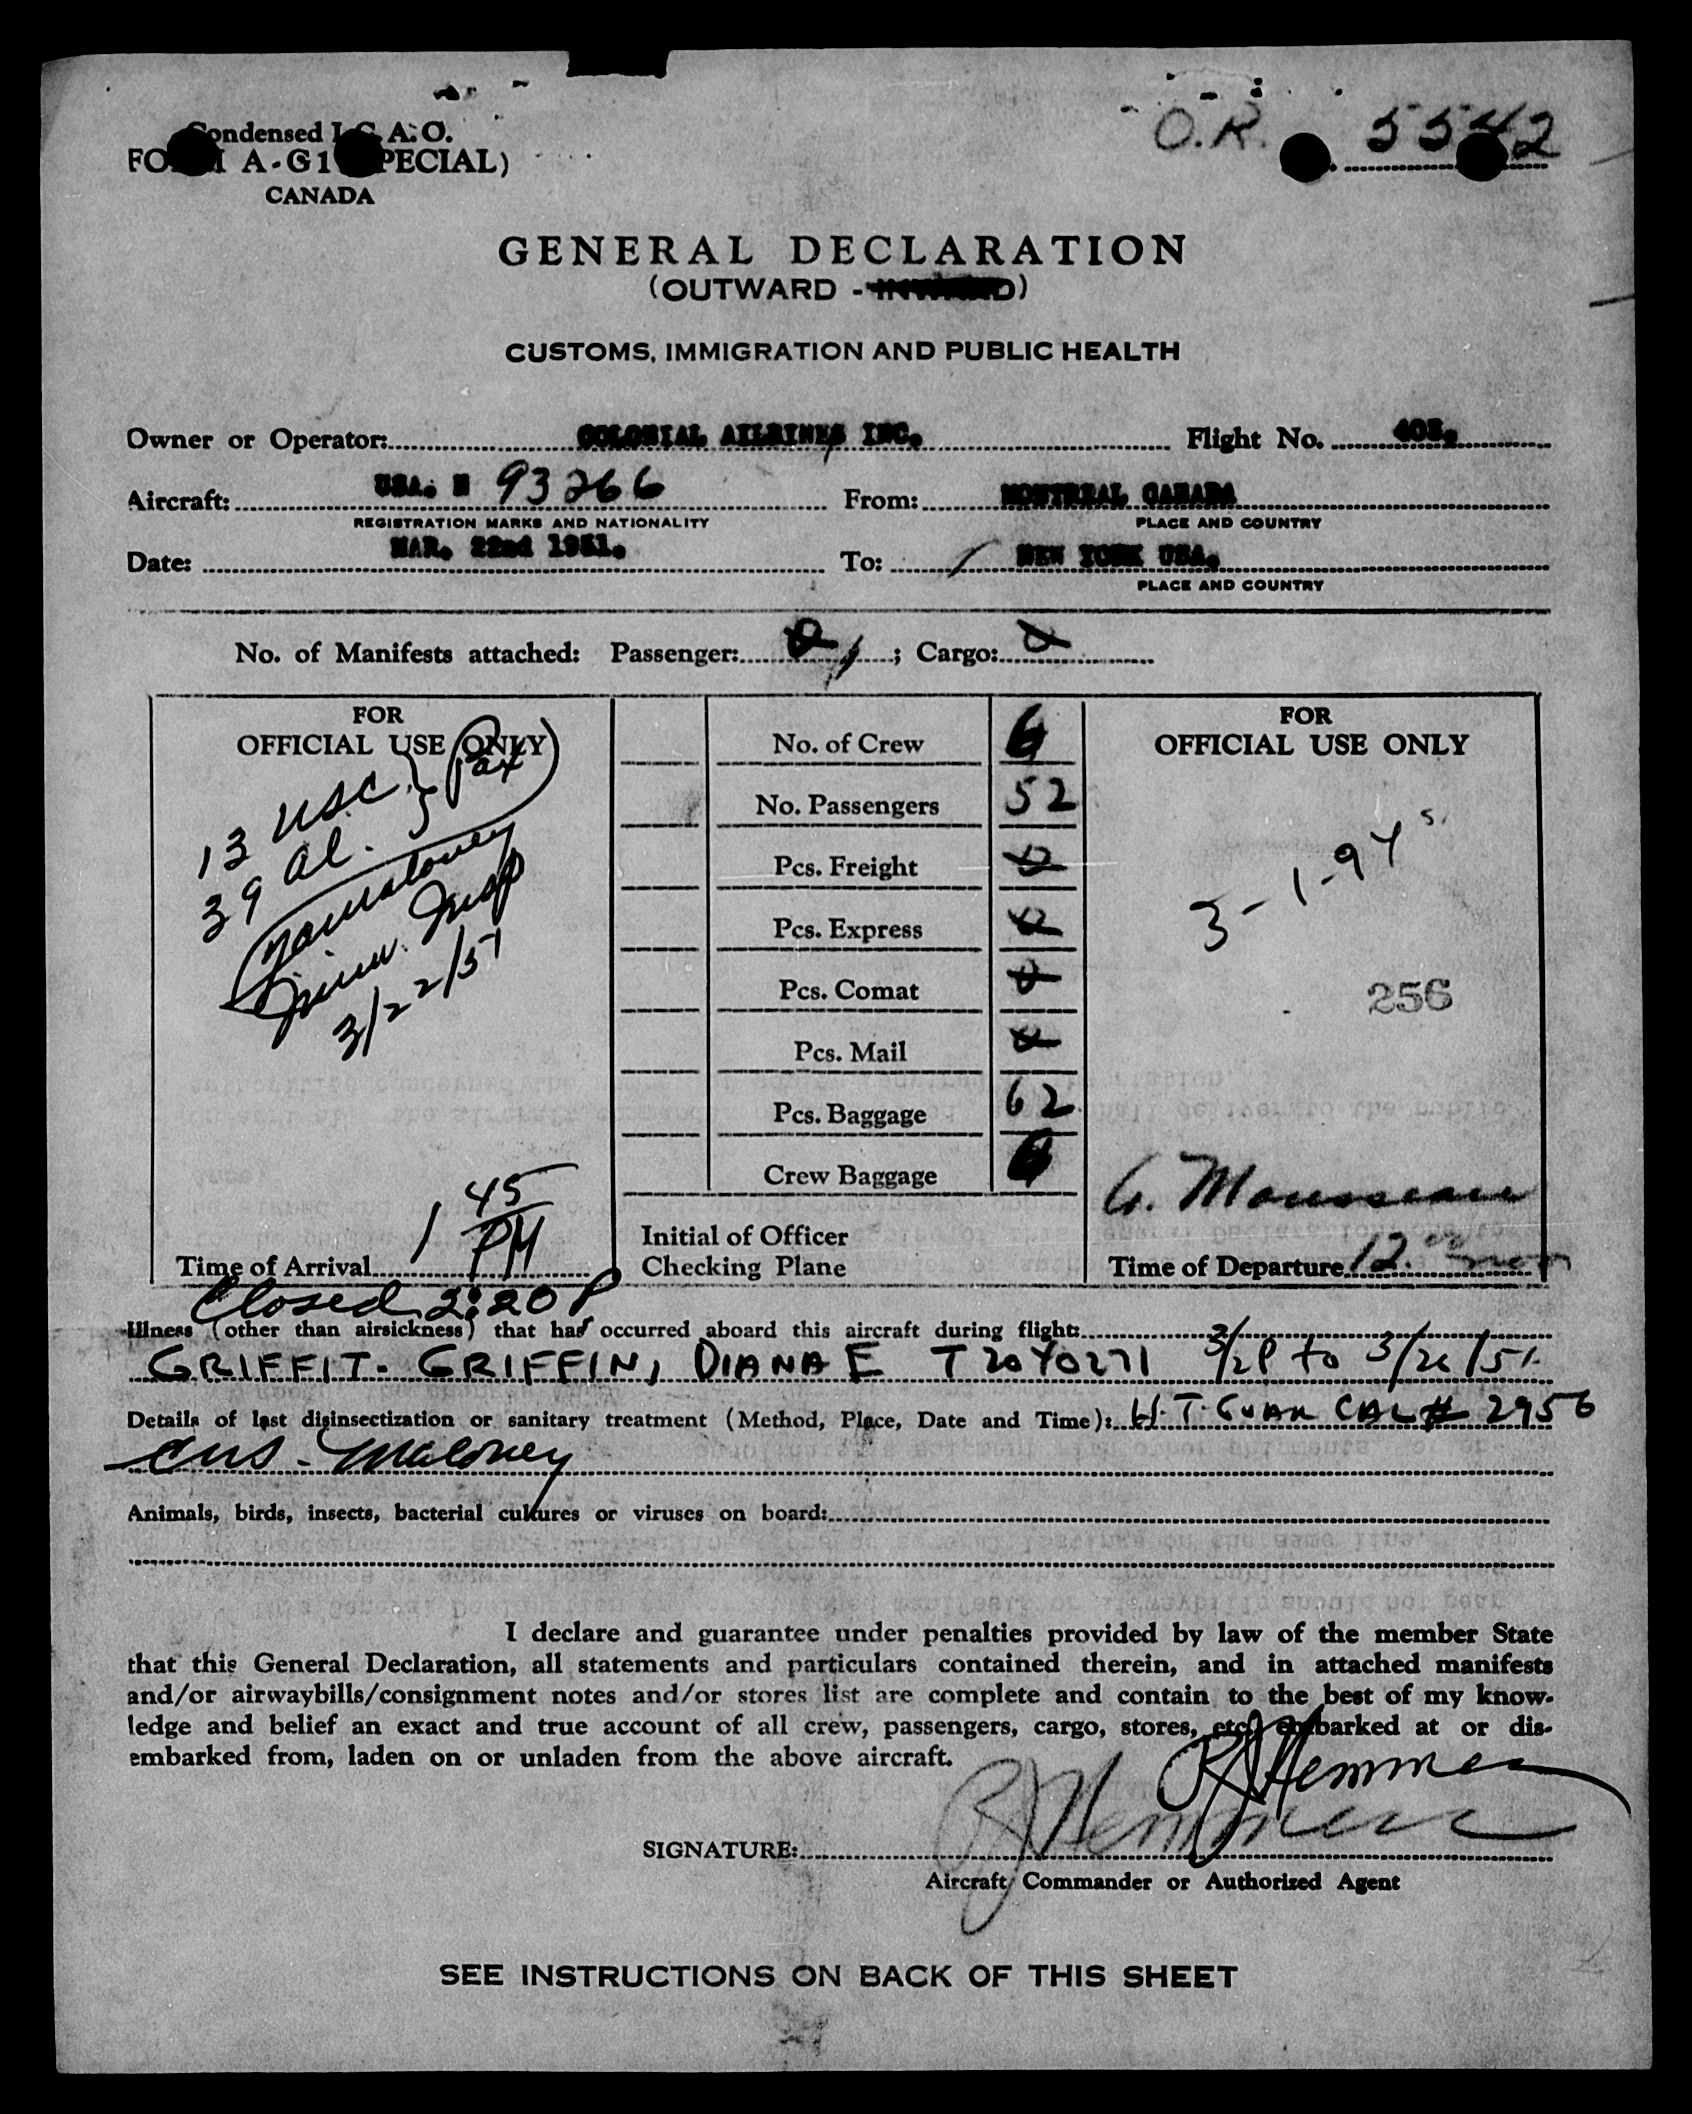 Condensed I.C.A.O.
O.R. 5542
FORM A-G1 (SPECIAL)
CANADA
GENERAL DECLARATION
(OUTWARD - INWARD)
CUSTOMS, IMMIGRATION AND PUBLIC HEALTH
Owner or Operator: COLONIAL AILRINES INC. Flight No. 403.
Aircraft: USA. N 93266 From: MONTREAL CANADA
REGISTRATION MARKS AND NATIONALITY PLACE AND COUNTRY
Date: MAR. 22nd 1951. To: NEW YORK USA.
PLACE AND COUNTRY
No. of Manifests attached: Passenger: 0 ; Cargo: 0
FOR
OFFICIAL USE ONLY
13 USC. } Pax
39 al.
Maloney
Immu. Insp
3/22/51
Time of Arrival 1 45 PM
No. of Crew 6
No. Passengers 52
Pcs. Freight 0
Pcs. Express 0
Pcs. Comat 0
Pcs. Mail 0
Pcs. Baggage 62
Crew Baggage 6
Initial of Officer
Checking Plane
FOR
OFFICIAL USE ONLY
3-1-94 s.
256
G. Mousseau
Time of Departure 12.00 noon
Closed 2:20 P
Illness (other than airsickness) that has occurred aboard this aircraft during flight:
GRIFFIT- GRIFFIN, DIANA E T20Y0271 to
Details of last disinsectization or sanitary treatment (Method, Place, Date and Time): CAL# 2956
Cus. Maloney
Animals, birds, insects, bacterial cultures or viruses on board:
I declare and guarantee under penalties provided by law of the member State
that this General Declaration, all statements and particulars contained therein, and in attached manifests
and/or airwaybills/consignment notes and/or stores list are complete and contain to the best of my know-
ledge and belief an exact and true account of all crew, passengers, cargo, stores, etc., embarked at or dis-
embarked from, laden on or unladen from the above aircraft.
SIGNATURE:
Aircraft Commander or Authorized Agent
SEE INSTRUCTIONS ON BACK OF THIS SHEET